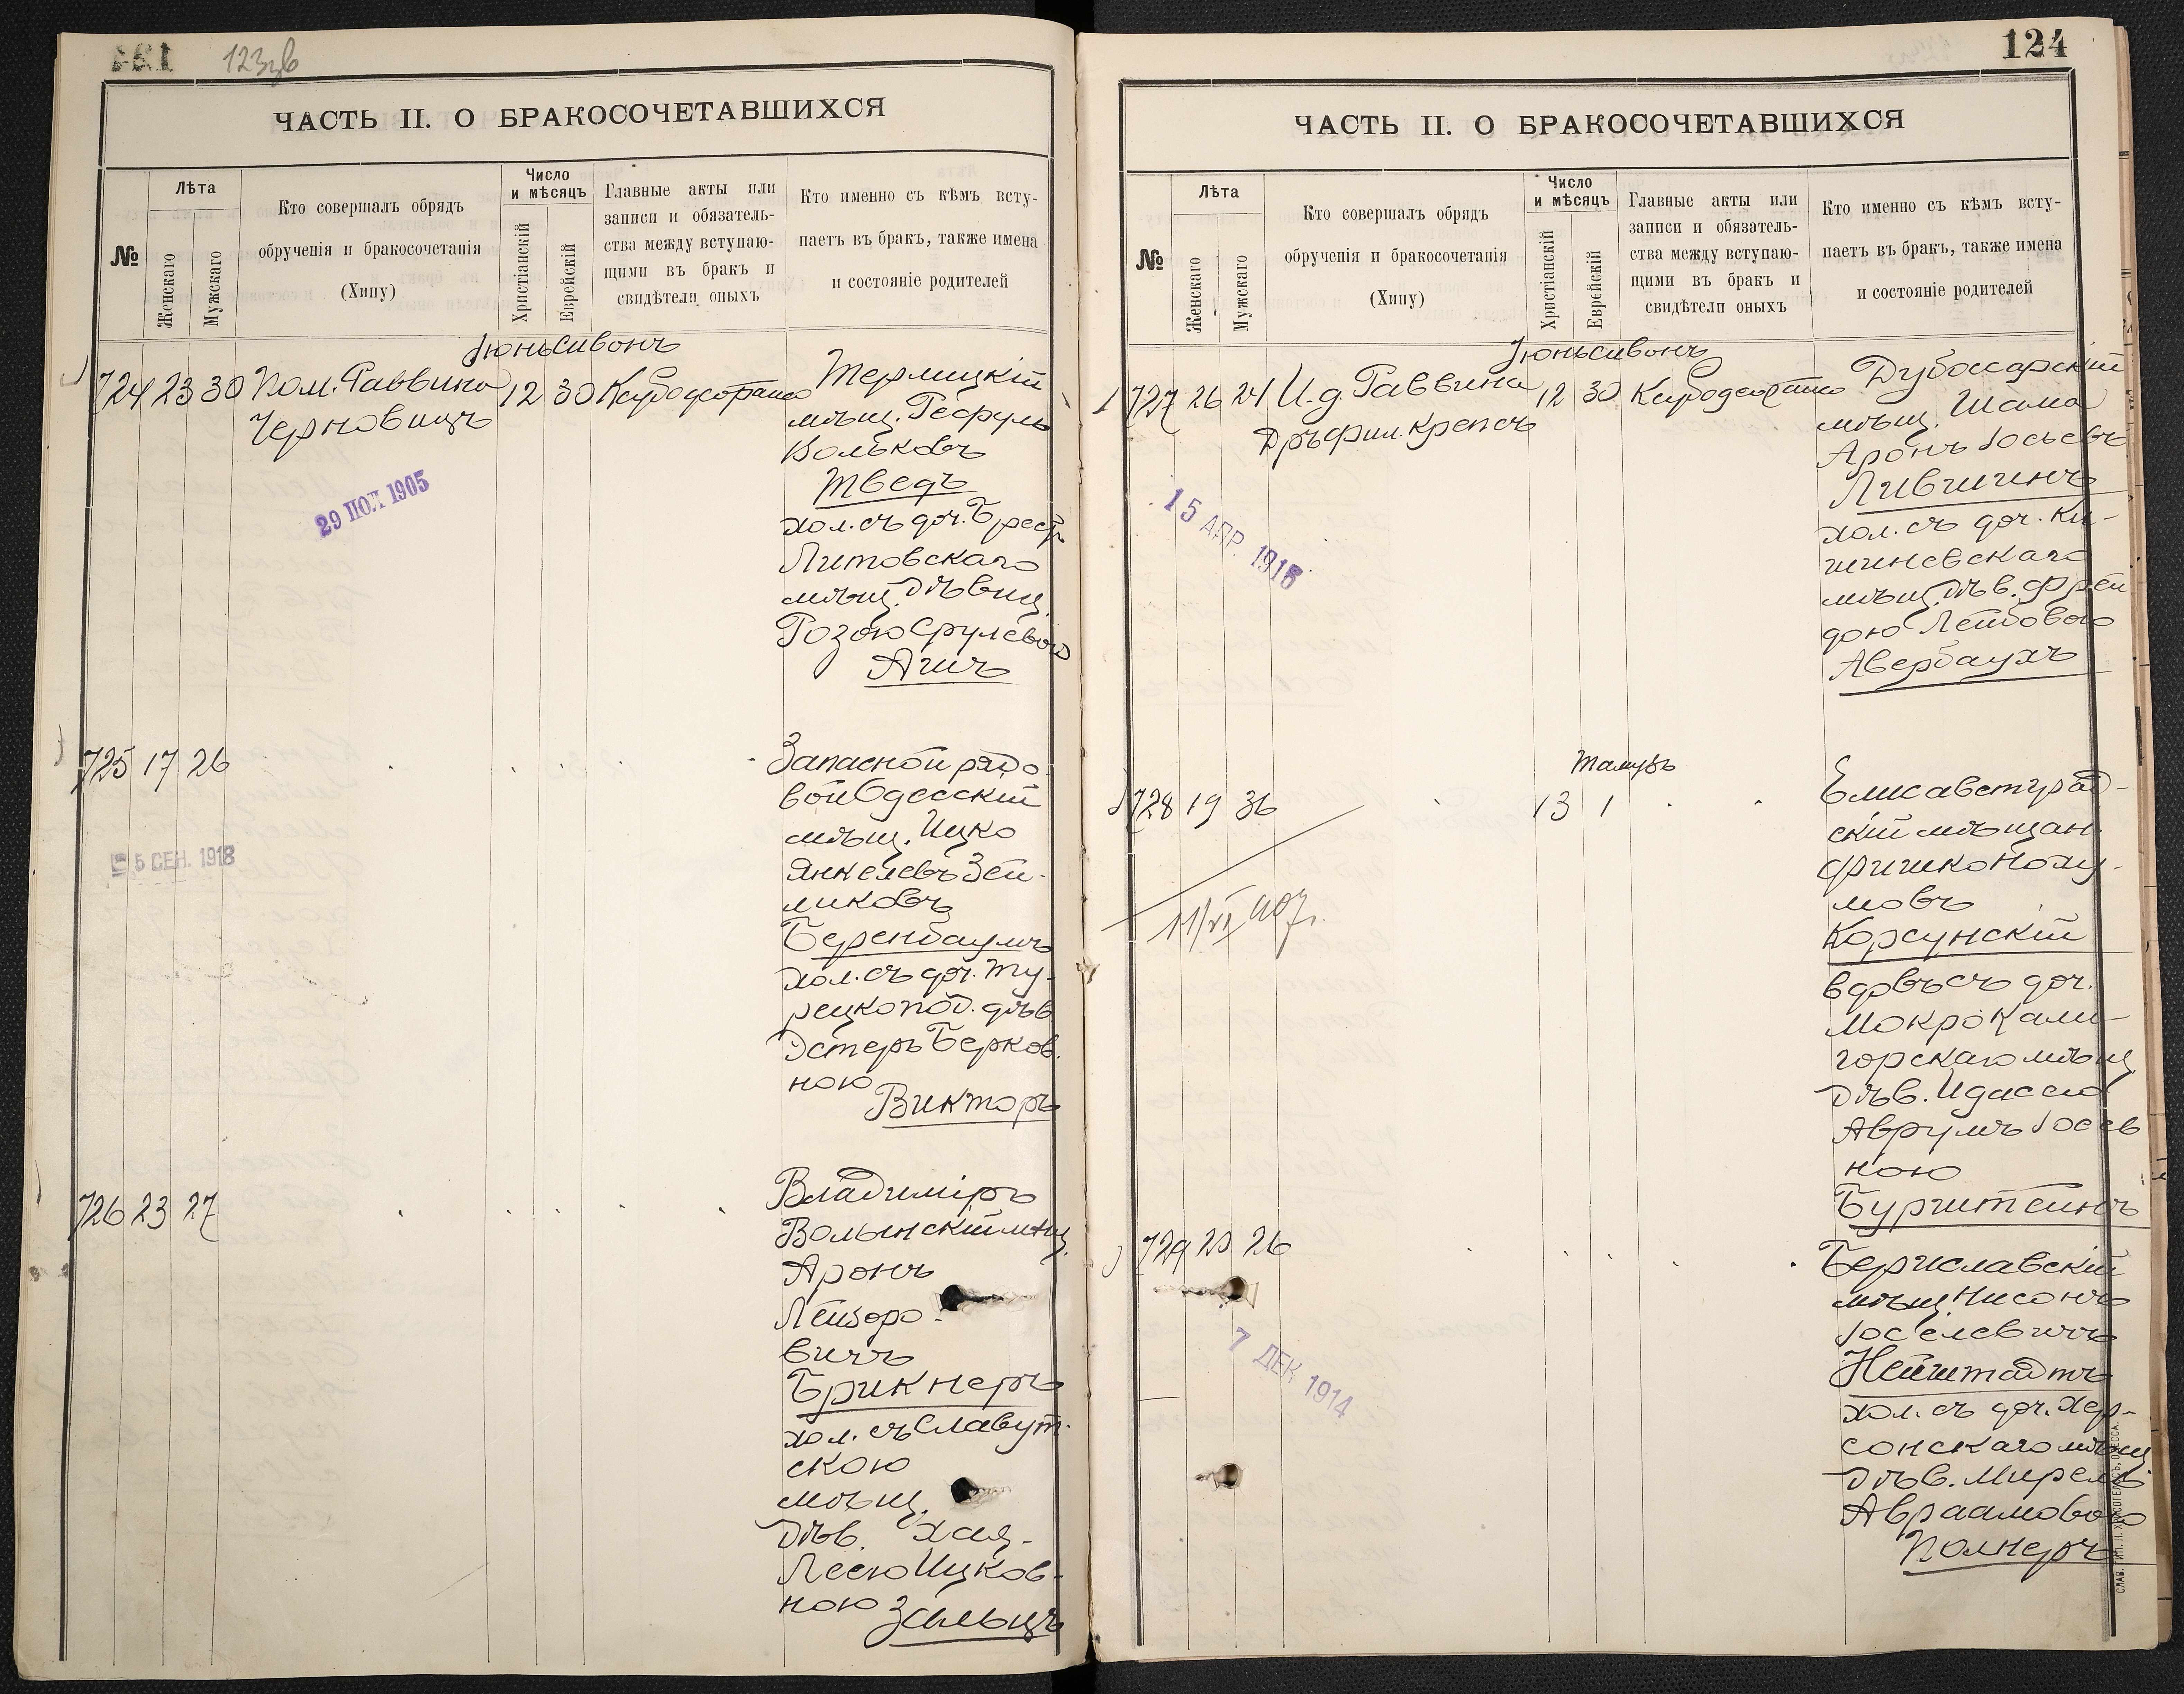 123 зв
ЧАСТЬ II. О БРАКОСОЧЕТАВШИХСЯ
№
Лѣта
Женскаго
Мужскаго
Кто совершалъ обрядъ
обрученія и бракосочетанія
(Хипу)
Число
и мѣсяцъ
Христіанскій
Еврейскій
Главные акты или
записи и обязатель-
ства между вступаю-
щими въ бракъ и
свидѣтели оныхъ
Кто именно съ кѣмъ всту-
паетъ въ бракъ, также имена
и состояніе родителей
Іюнь Сивонъ
724 23 30 Пом. Раввина 12 30
Черновицъ
мѣщ.
Вольковъ
Шведъ
хол. съ доч. Брест
Литовскаго
мѣщ. Дѣвиц.
Розою Срулевою
Ашъ
29 ІЮЛ 1905
725 17 26
Запасной рядо-
вой Одесскій
мѣщ. Ицко
Янкелевъ Зей-
ликовъ
Беренбаумъ
хол. съ доч. Ту-
рецкопод. дѣв.
Эстеръ Берков.
ною
Викторъ
5 СЕН. 1918
726 23 27
Владиміръ
Волынскій мѣщ.
Аронъ
Лейзоро-
вичъ
Брикнеръ
хол. съ Славут-
скою
мѣщ.
Дѣв. Хая-
Лею Ицков-
ною Зальцъ
124
ЧАСТЬ II. О БРАКОСОЧЕТАВШИХСЯ
№
Лѣта
Женскаго
Мужскаго
Кто совершалъ обрядъ
обрученія и бракосочетанія
(Хипу)
Число
и мѣсяцъ
Христіанскій
Еврейскій
Главные акты или
записи и обязатель-
ства между вступаю-
щими въ бракъ и
свидѣтели оныхъ
Кто именно съ кѣмъ всту-
паетъ въ бракъ, также имена
и состояніе родителей
Іюнь Сивонъ
727 26 24 И.д. Раввина 12 30
Дръ фил. Крепсъ
Дубоссарскій
мѣщ. Шама
Аронъ Іосьевъ
Лившинъ
хол. съ доч. Ки-
шиневскаго
мѣщ. Дѣв. Фрей
дою Лейбовою
Авербаухъ
15 АПР. 1916
Тамузъ
728 19 36 13 1
Елисаветград-
скій мѣщан.
Фришко Наху-
мовъ
Корсунскій
вдовъ съ доч.
Мокро Кали-
горскаго мѣщ.
Дѣв. Идассею
Аврумъ Іосев
ною
Бурштейнъ
11/VI 907 г.
729 23 26
Бериславскій
мѣщ. Нисонъ
Іоселевичъ
Нейштадтъ
хол. съ доч. Хер-
сонскаго мѣщ.
Дѣв. Мирель
Авраамовою
Полнеръ
7 ДЕК 1914
СЛАВ. ТИП. Н. ХРИСОГЕЛОСЪ, ОДЕССА.